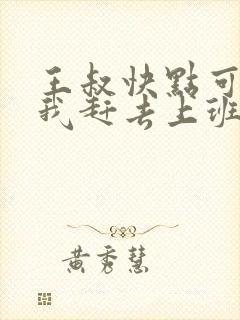 王叔快點可
我赶去上班
黄秀慧